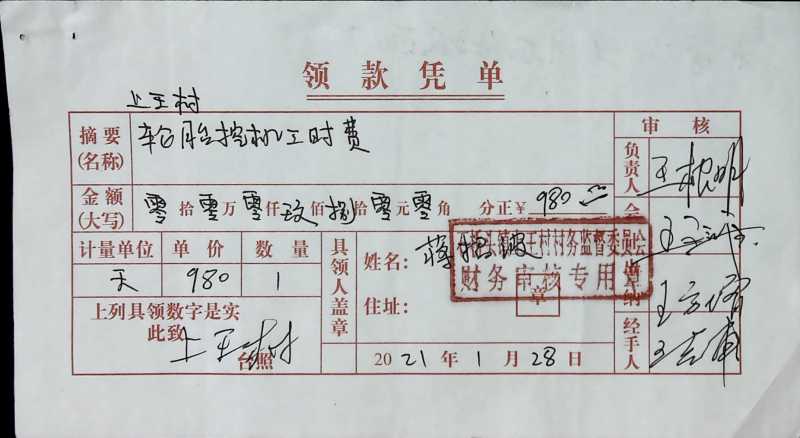 领款凭单
上王村
摘要 (名称) 轮胎挖机工时费
审核
金额 (大写) 零拾零万零仟玖佰捌拾零元零角 分正¥ 980
负责人
计量单位 单价 数量
天 980 1
具领人盖章
姓名: 蒋
村务监督委员会
财务审核专用章
住址:
章
上列具领数字是实
此致
上王村
台照
2021年1月28日
经手人